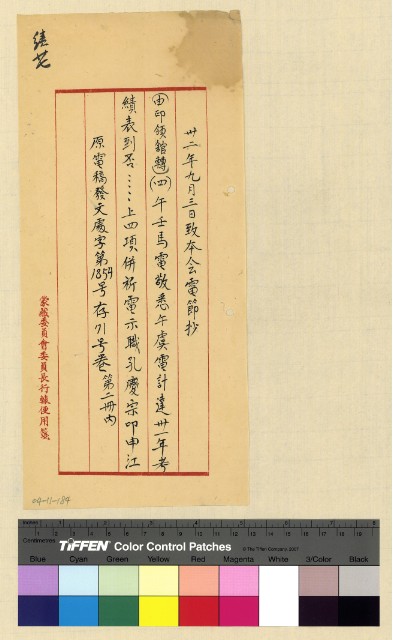 續芒
卅二年九月三日致本会電節抄
由印領館轉(四)午壬馬電敬悉午虞電計達卅一年考
績表到否……上四項併祈電示職孔慶宗叩申江
原電稿發文處字第1854号存71号卷第二冊內
蒙藏委員會委員長行轅便用箋
04-11-184
Inches 1 2 3 4 5 6 7 8
Centimetres 1 2 3 4 5 6 7 8 9 10 11 12 13 14 15 16 17 18 19
TIFFEN Color Control Patches
© The Tiffen Company, 2007
Blue Cyan Green Yellow Red Magenta White 3/Color Black